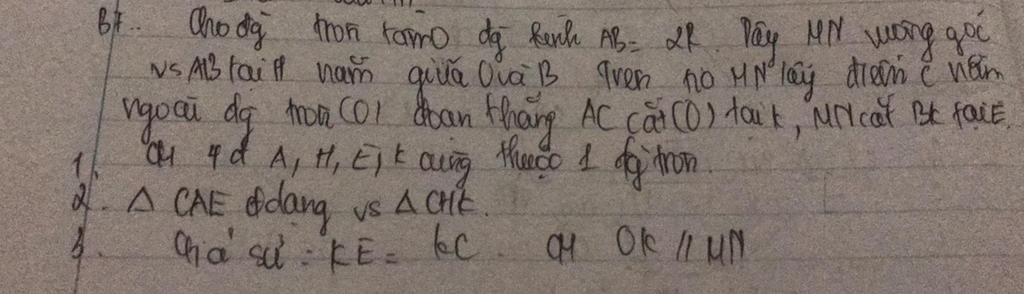 B1.. Cho đg tròn tâm O đg kính AB= 2R. Dây MN vuông góc
vs AB tại H nằm giữa O và B trên nó MN lấy điểm C nằm
ngoài đg tròn (O) đoạn thẳng AC cắt (O) tại K, MN cắt BK tại E.
1. CM 4 đ A, H, E, K cùng thuộc 1 đg tròn.
2. Δ CAE đ dạng vs Δ CHK.
3. Giả sử : KE = KC. CM OK // MN